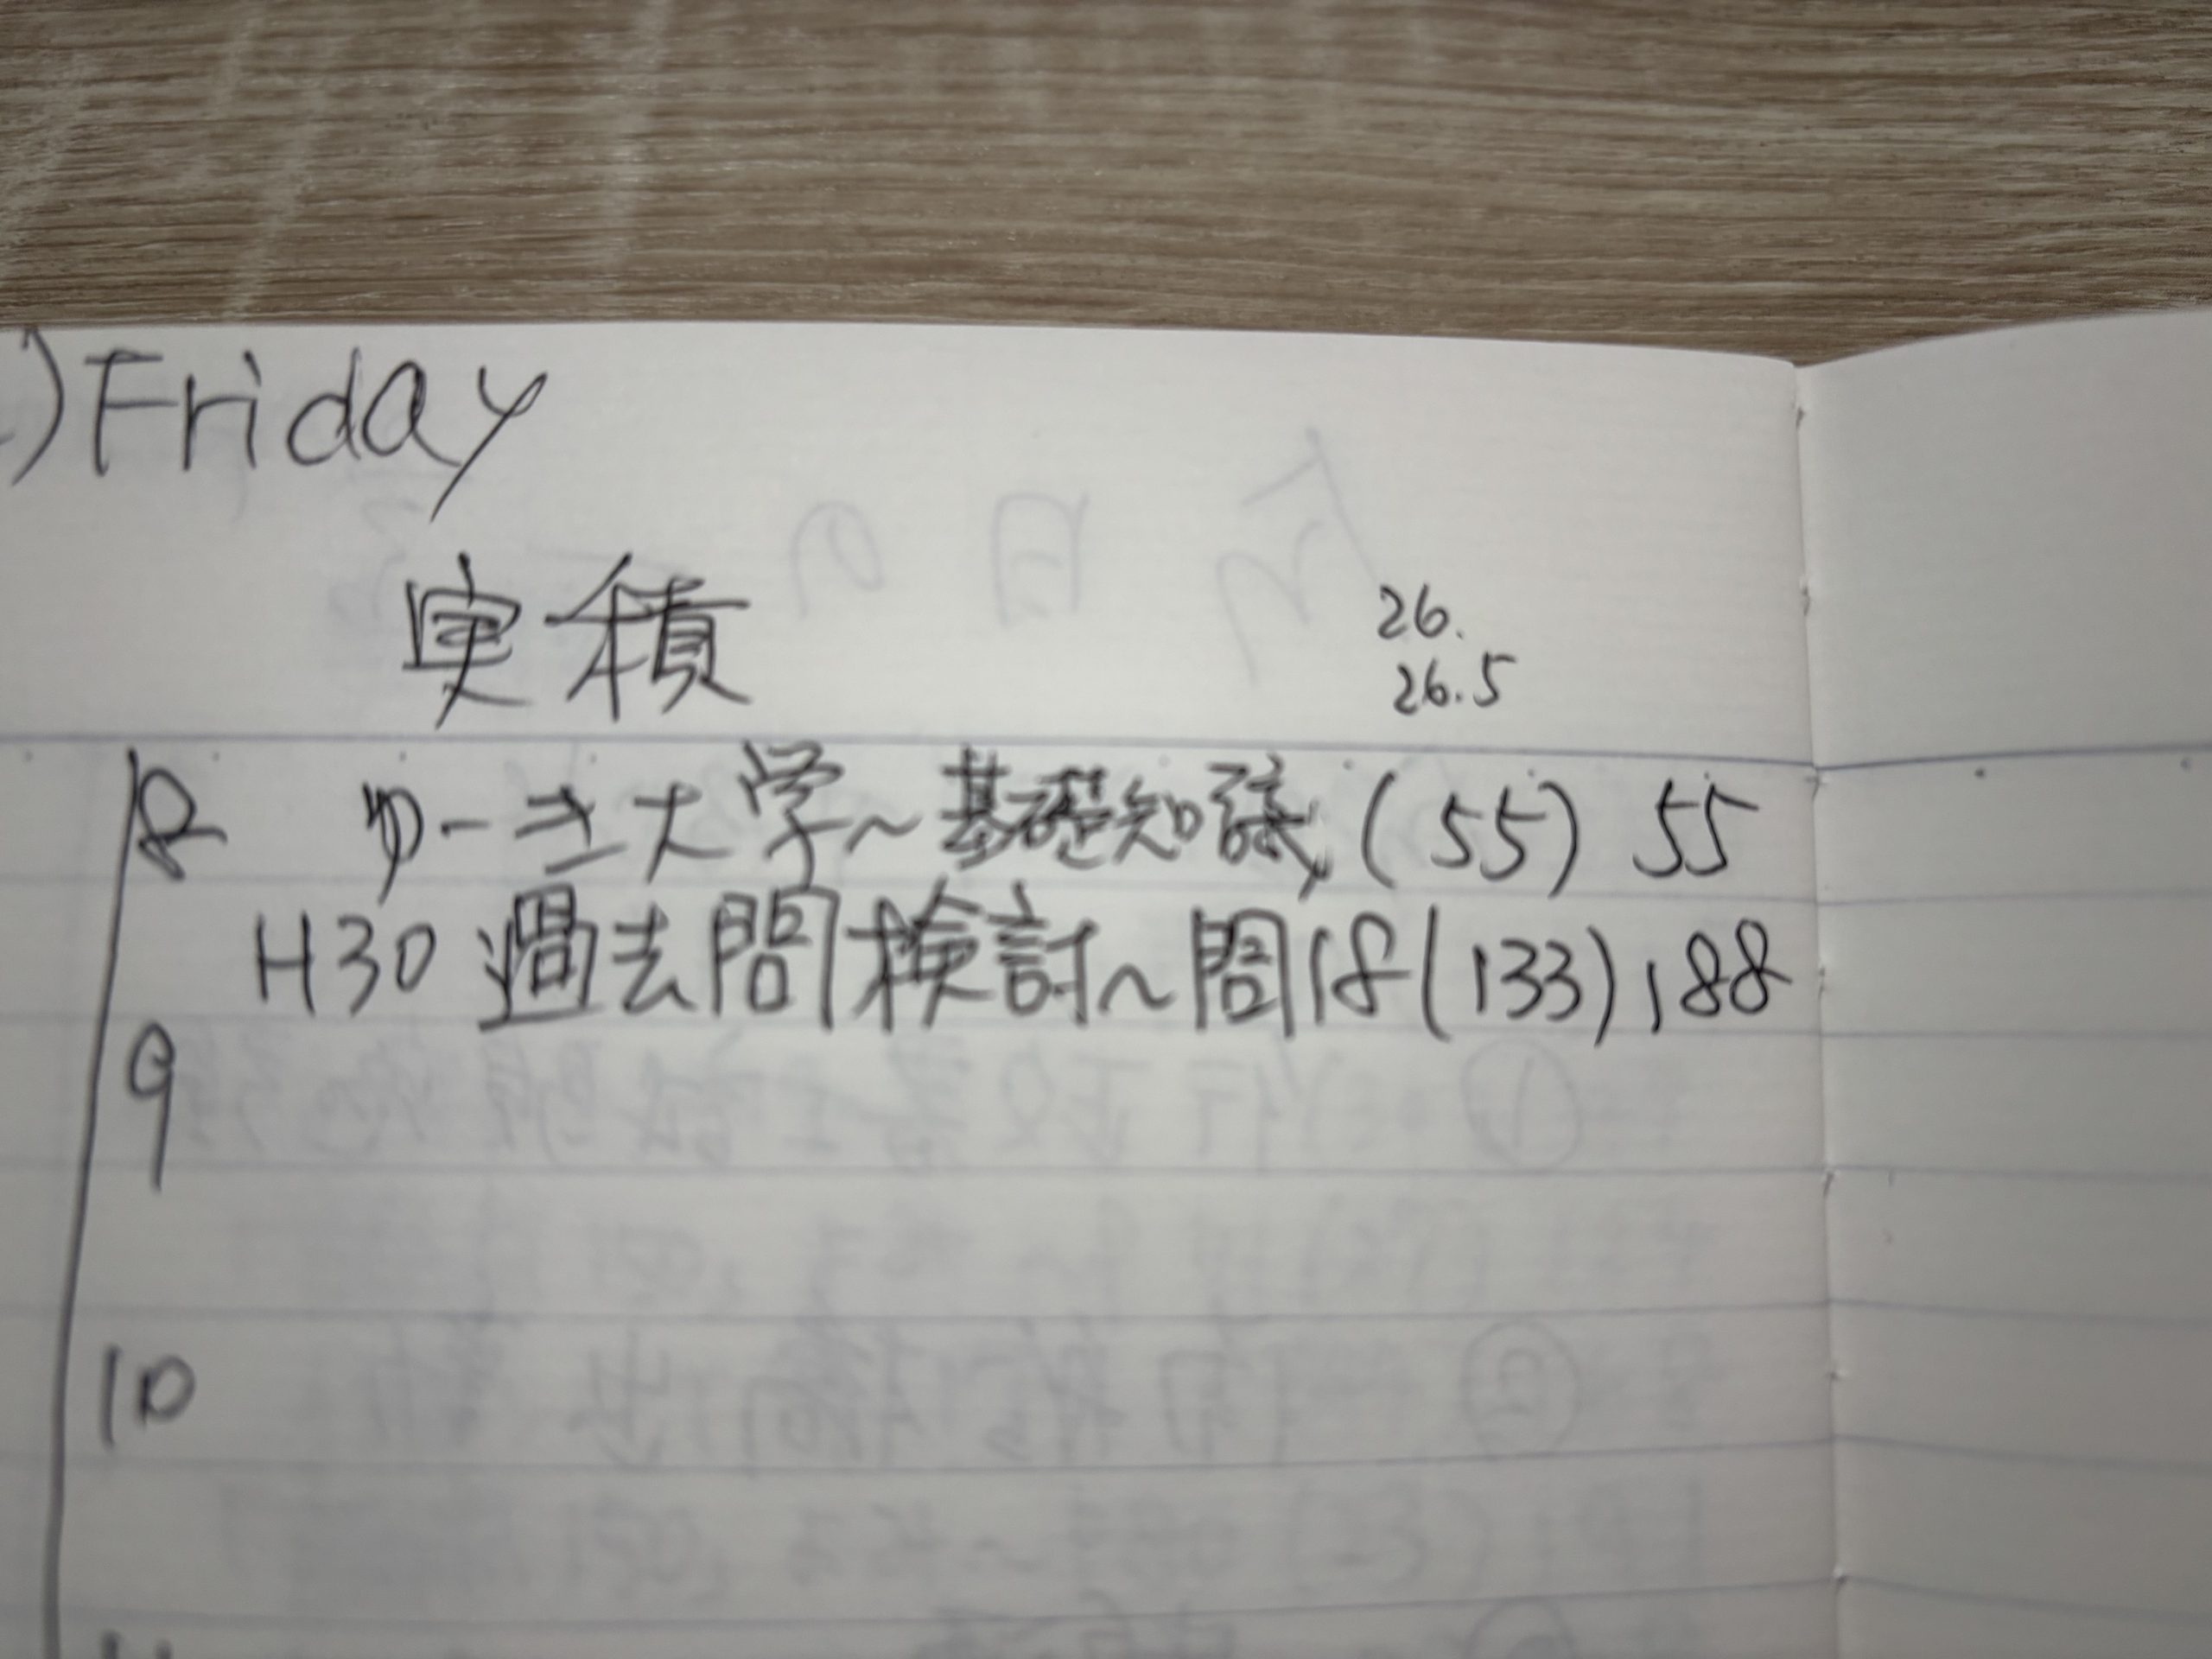 )Friday
実積
26.
26.5
8 ゆーき大学～基礎知識(55) 55
H30 過去問検討～問18(133) 188
9
10